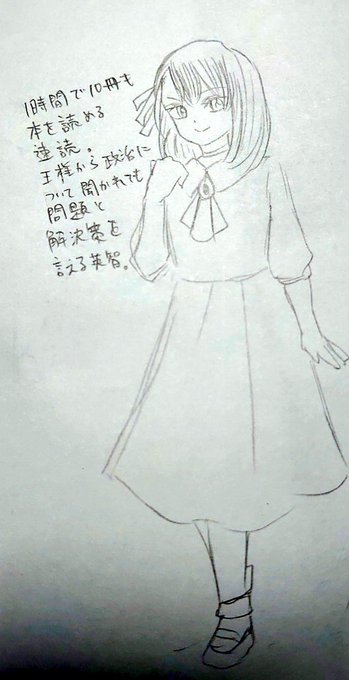 1時間で10冊も
本を読める
速読。
王様から政治に
ついて聞かれても
問題と
解決策を
言える英智。